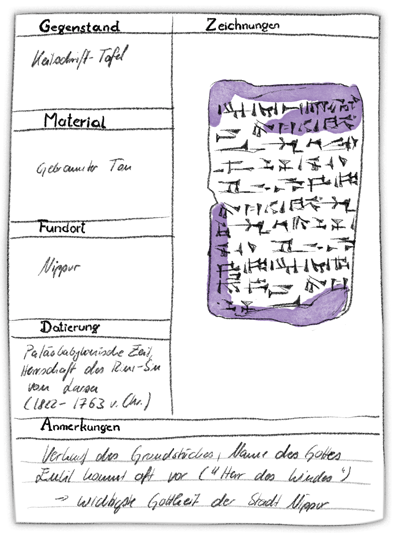 Gegenstand
Keilschrift-Tafel
Material
Gebrannter Ton
Fundort
Nippur
Datierung
Paläobabylonische Zeit,
Herrschaft des Rim-Sin
von Larsa
(1822-1763 v. Chr.)
Zeichnungen
Anmerkungen
Verkauf des Grundstückes, Name des Gottes
Enlil kommt oft vor ("Herr des Windes")
→ wichtigste Gottheit der Stadt Nippur